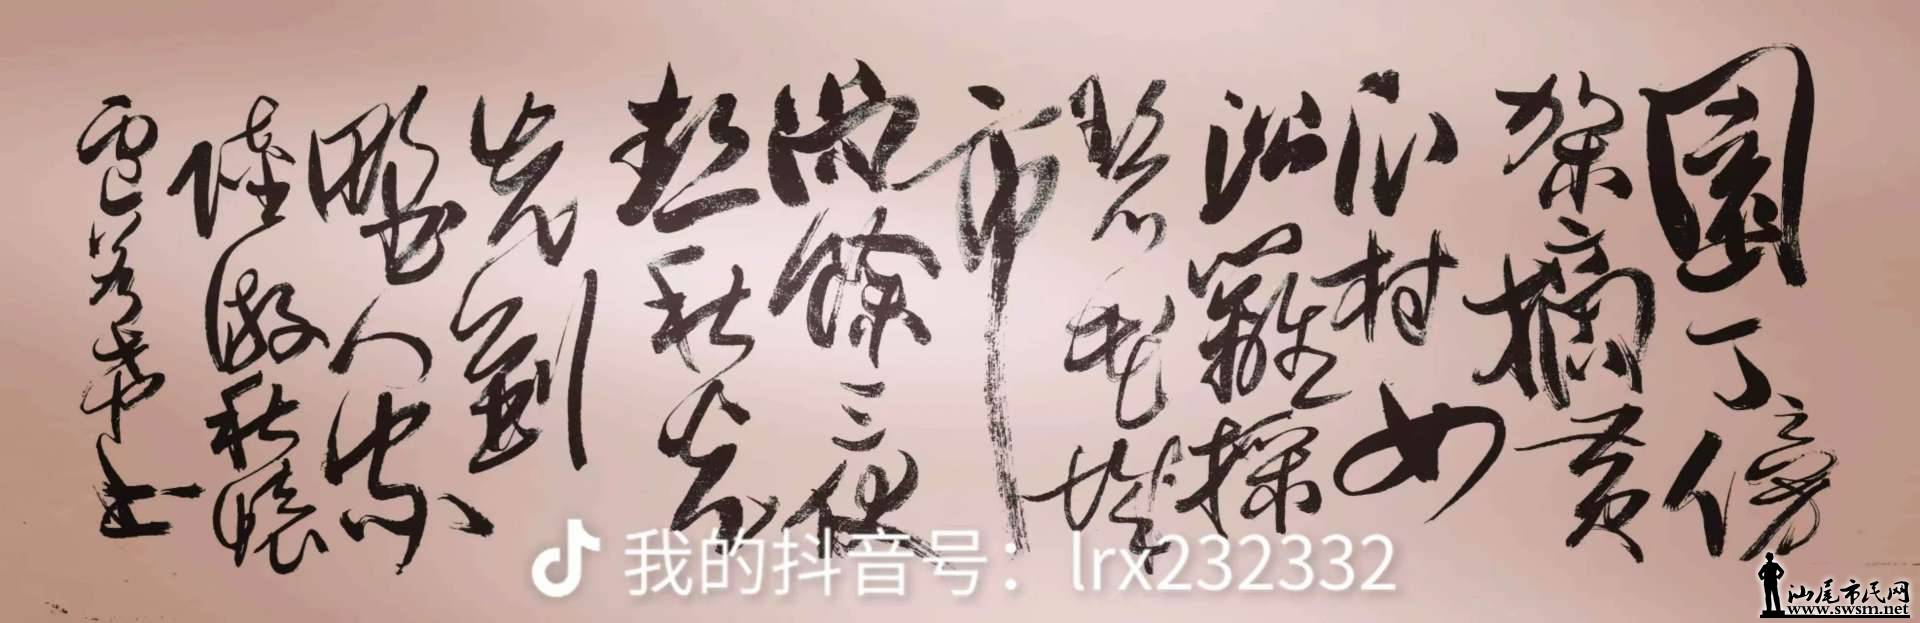 園丁傍
架摘黄
瓜村女
沿籬採
碧花城
市
尚餘三伏
熱秋光
先到
野人家
陸游秋懷
书
我的抖音号：lrx232332
汕尾市民网
www.swsm.net